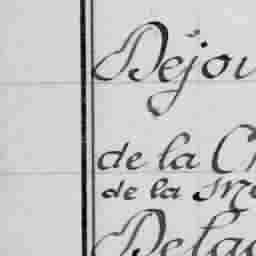 Déjou
de la Ch
de la Mo
Delac